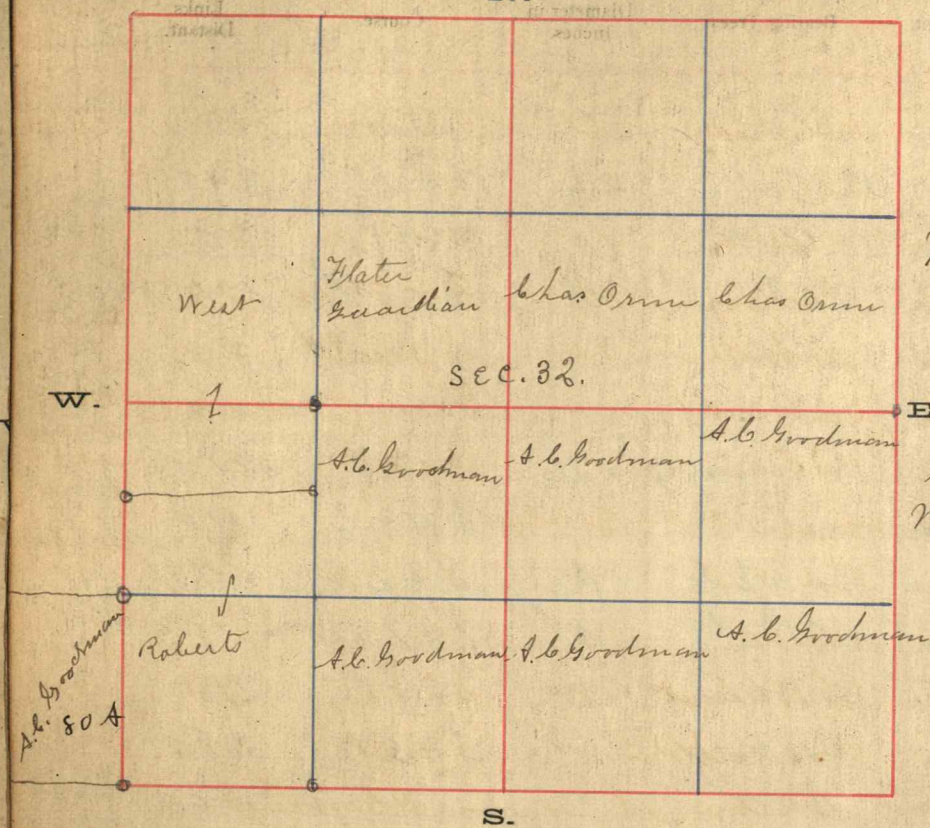 West
Flater
Guardian
Chas Orme
Chas Orme
SEC. 32.
W.
E
A.C. Goodman
A.C. Goodman
A.C. Goodman
Roberts
A.C. Goodman
A.C. Goodman
A.C. Goodman
A.C. Goodman
80 A
S.